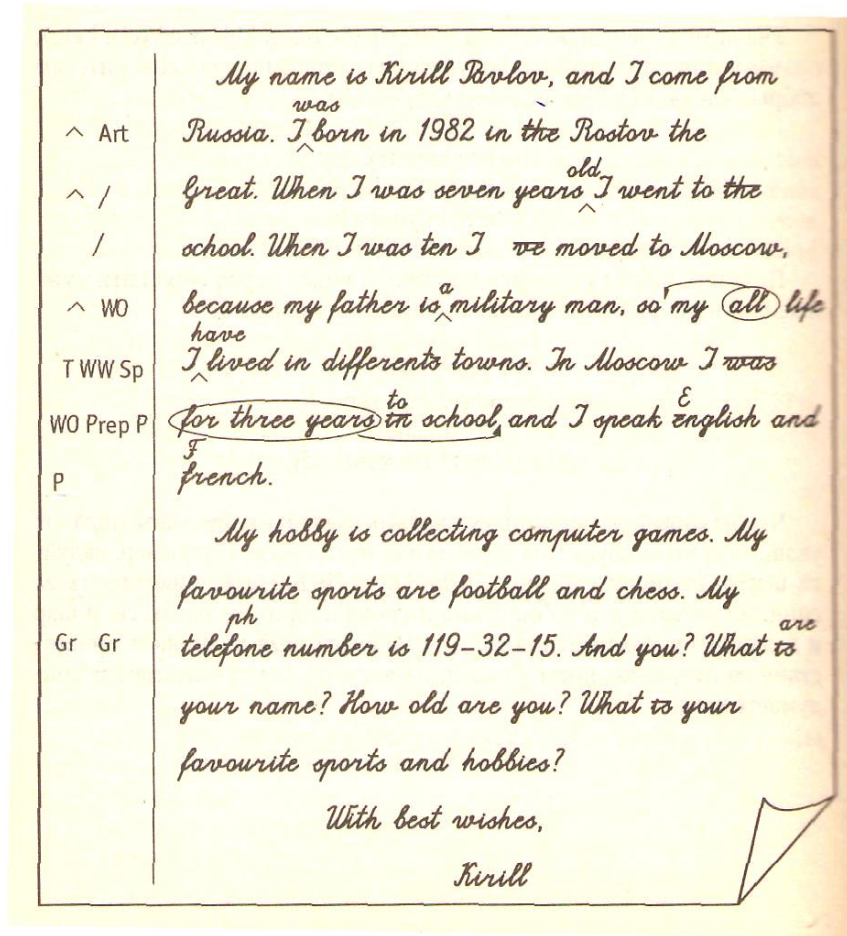 My name is Kirill Pavlov, and I come from
was
^ Art Russia. I born in 1982 in the Rostov the
old
^ / Great. When I was seven years I went to the
/ school. When I was ten I ve moved to Moscow,
a
^ WO because my father is military man, so my all life
have
T WW Sp I lived in differents towns. In Moscow I was
to E
WO Prep P for three years in school, and I speak english and
F
P french.
My hobby is collecting computer games. My
favourite sports are football and chess. My
ph are
Gr Gr telefone number is 119-32-15. And you? What is
your name? How old are you? What is your
favourite sports and hobbies?
With best wishes,
Kirill